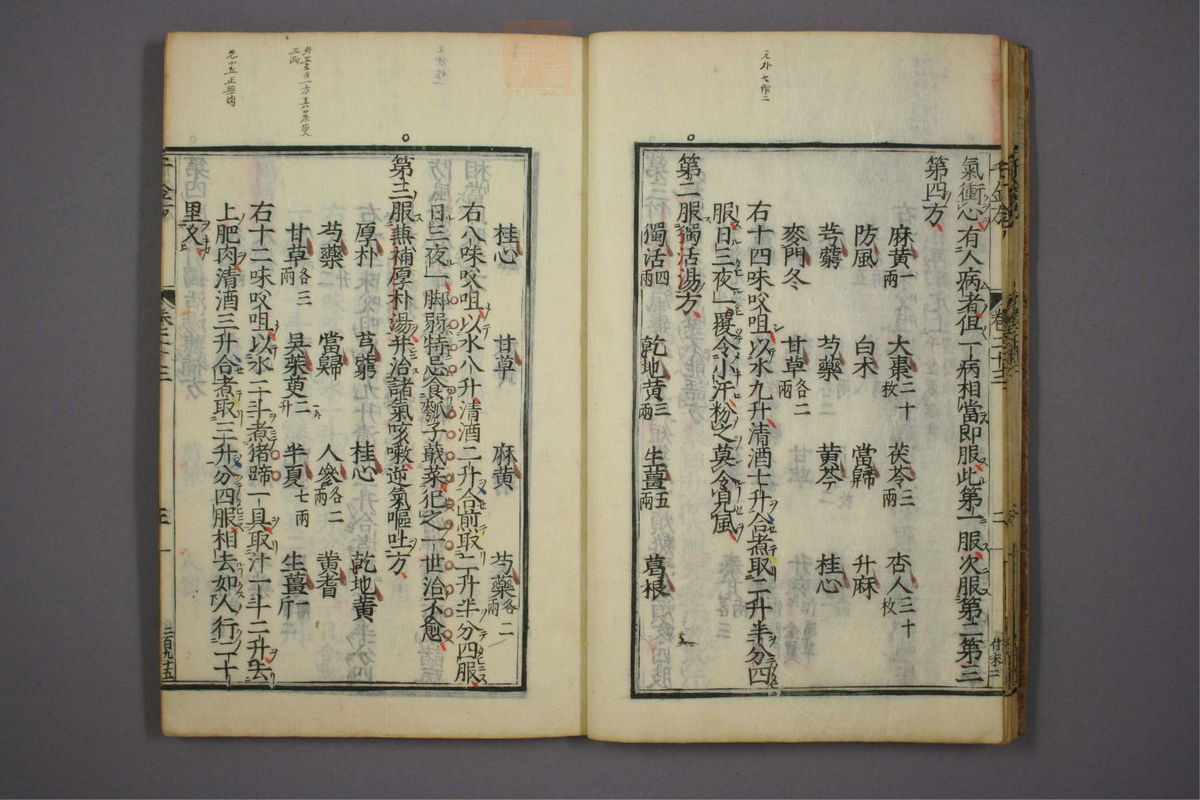 氣衝心有人病者但一病相當即服此第一服次服第二第三
第四方
麻黃一兩 大棗二十枚 茯苓三兩 杏人三十枚
防風 白朮 當歸 升麻
芎藭 芍藥 黃芩 桂心
麥門冬 甘草各二兩
右十四味㕮咀以水九升清酒七升合煮取二升半分四
服日三夜一覆令小汗粉之莫令見風
第二服獨活湯方
獨活四兩 乾地黃三兩 生薑五兩 葛根
桂心 甘草 麻黃 芍藥各二兩
右八味㕮咀以水八升清酒二升合煎取二升半分四服
日三夜一脚弱特忌食瓠子蕺菜犯之一世治不愈
第三服兼補厚朴湯并治諸氣咳嗽逆氣嘔吐方
厚朴 芎藭 桂心 乾地黃
芍藥 當歸 人參各二兩 黃耆
甘草各三兩 吳茱萸二升 半夏七兩 生薑一斤
右十二味㕮咀以水二斗煮猪蹄一具取汁一斗二升去
上肥肉清酒三升合煮取三升分四服相去如人行二十
里久
三百九十五